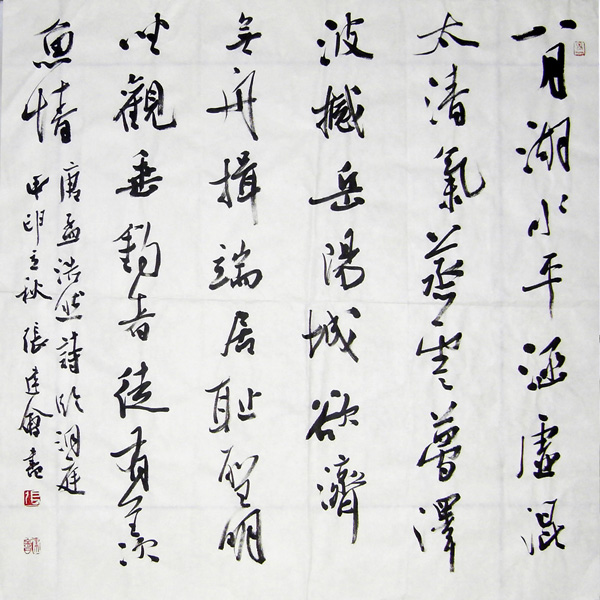 八月湖水平涵虛混
太清氣蒸雲夢澤
波撼岳陽城欲濟
無舟揖端居耻聖明
坐觀垂釣者徒有羨
魚情
唐孟浩然詩臨洞庭
立秋張書